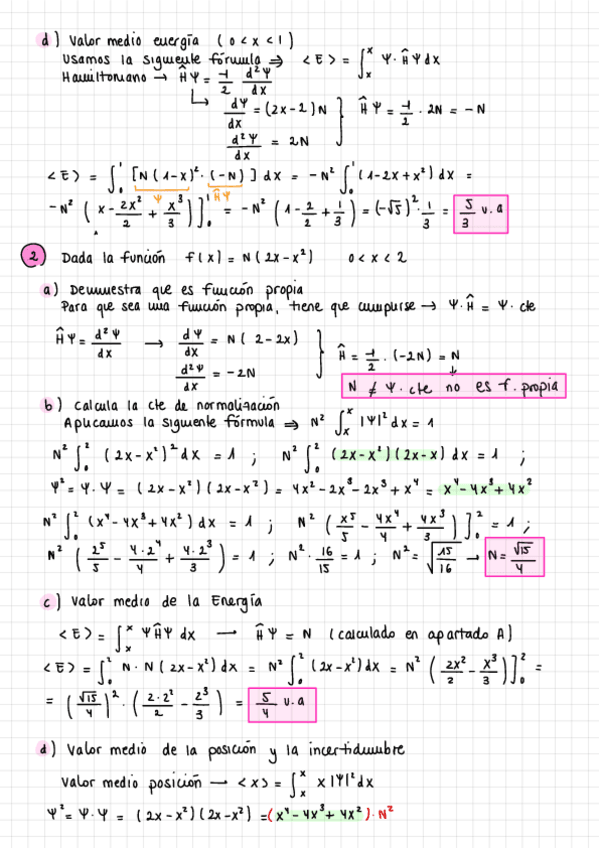 d) Valor medio energía (0<x<1)
Usamos la siguiente fórmula ⇒ <E> = ∫ₓˣ Ψ·ĤΨdx
Hamiltoniano → ĤΨ = -1/2 d²Ψ/dx
↳ dΨ/dx = (2x-2)N } ĤΨ = -1/2 · 2N = -N
d²Ψ/dx = 2N
<E> = ∫₀¹ [N(1-x)²·(-N)] dx = -N² ∫₀¹ (1-2x+x²) dx =
Ψ ĤΨ
-N² (x - 2x²/2 + x³/3)]₀¹ = -N² (1 - 2/2 + 1/3) = (-√5)² · 1/3 = 5/3 u.a
2 Dada la función f(x) = N(2x-x²) 0<x<2
a) Demuestra que es función propia
Para que sea una función propia, tiene que cumplirse → Ψ·Ĥ = Ψ·cte
ĤΨ = d²Ψ/dx → dΨ/dx = N(2-2x) } Ĥ = -1/2 · (-2N) = N
d²Ψ/dx = -2N
N ≠ Ψ·cte no es f. propia
b) Calcula la cte de normalización
Aplicamos la siguiente fórmula ⇒ N² ∫ₓˣ |Ψ|² dx = 1
N² ∫₀² (2x-x²)² dx = 1 ; N² ∫₀² (2x-x²)(2x-x) dx = 1 ;
Ψ² = Ψ·Ψ = (2x-x²)(2x-x²) = 4x²-2x³-2x³+x⁴ = x⁴-4x³+4x²
N² ∫₀² (x⁴-4x³+4x²) dx = 1 ; N² (x⁵/5 - 4x⁴/4 + 4x³/3)]₀² = 1 ;
N² (2⁵/5 - 4·2⁴/4 + 4·2³/3) = 1 ; N² · 16/15 = 1 ; N² = √(15/16) → N = √15/4
c) Valor medio de la Energía
<E> = ∫ₓˣ ΨĤΨ dx → ĤΨ = N (calculado en apartado A)
<E> = ∫₀² N·N(2x-x²) dx = N² ∫₀² (2x-x²) dx = N² (2x²/2 - x³/3)]₀² =
= (√15/4)² · (2·2²/2 - 2³/3) = 5/4 u.a
d) Valor medio de la posición y la incertidumbre
Valor medio posición → <x> = ∫ₓˣ x|Ψ|² dx
Ψ² = Ψ·Ψ = (2x-x²)(2x-x²) = (x⁴-4x³+4x²)·N²